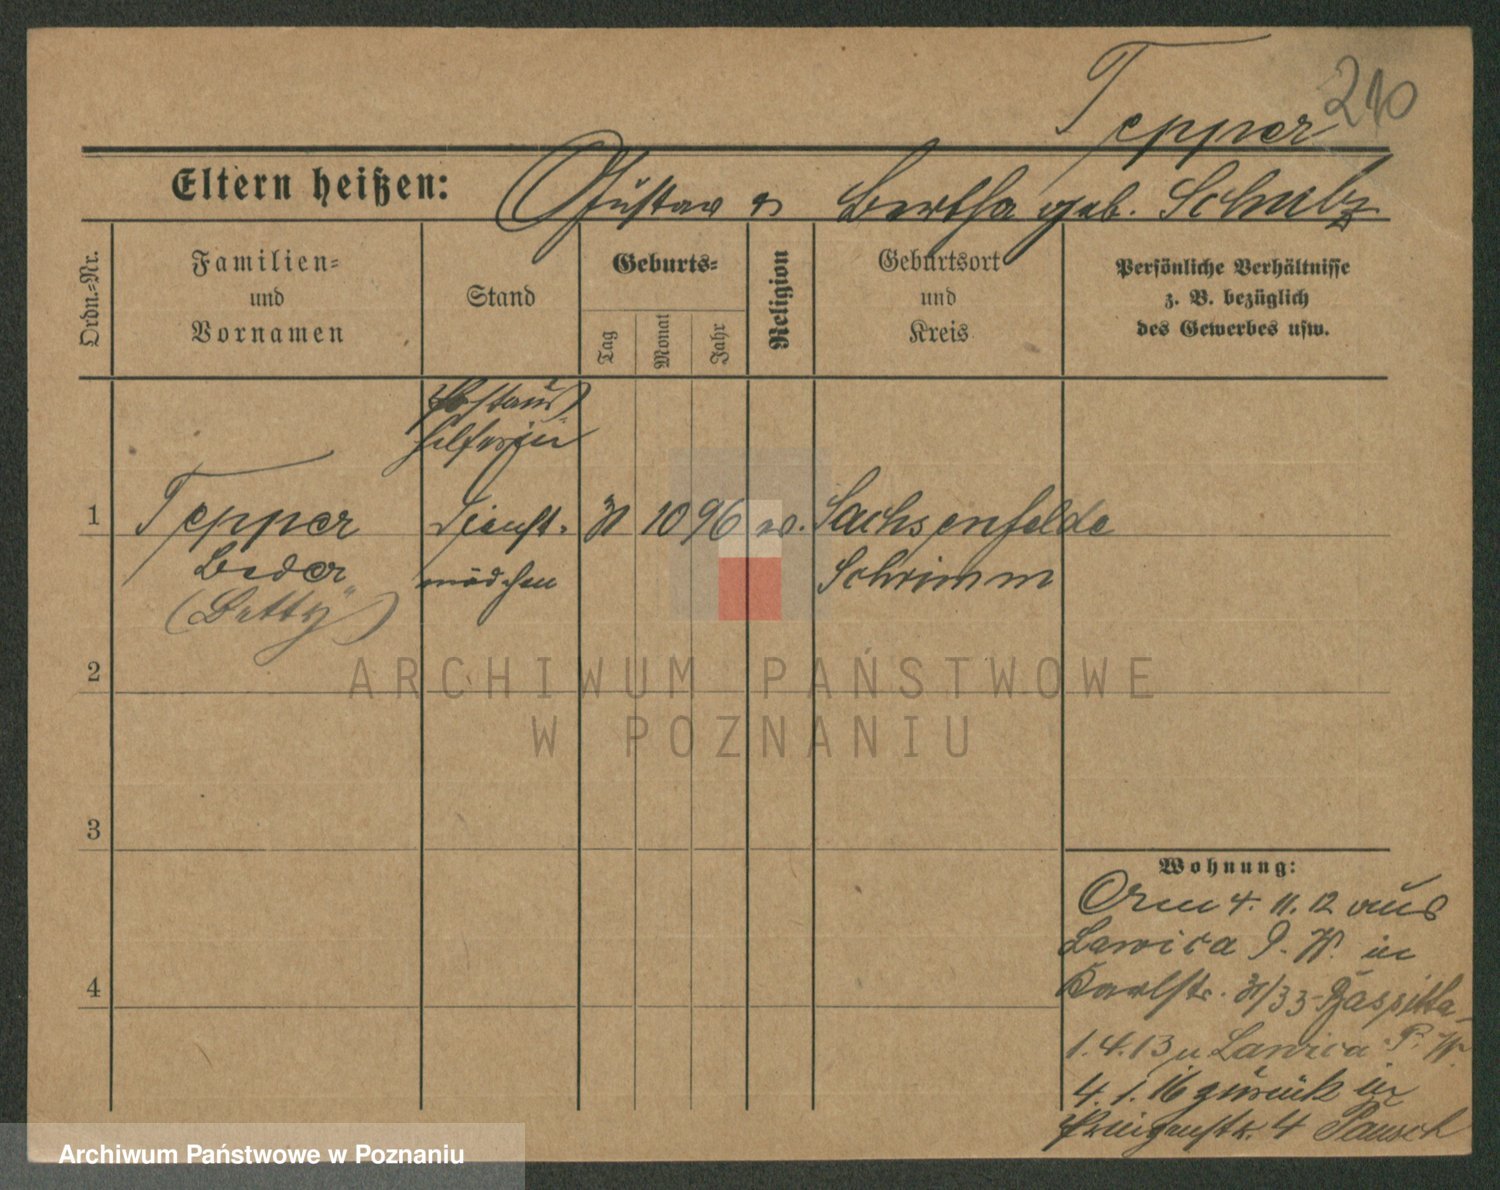 Tepper 210
Eltern heißen: Gustav u Bertha geb. Schulz
Ordn.-Nr.
Familien-
und
Vornamen
Stand
Geburts-
Tag
Monat
Jahr
Religion
Geburtsort
und
Kreis
Persönliche Verhältnisse
z. B. bezüglich
des Gewerbes usw.
Postaus
helferin
1 Tepper Dienst- 31 10 96 ev. Sachsenfelde
mädchen Schrimm
("Betty")
2
ARCHIWUM PAŃSTWOWE
W POZNANIU
3
4
Wohnung:
4. 11. 12 aus
Lawica P. W. in
Karlstr. 31/33
1.4.13 n Lawica P. W.
4. 1. 16 zurück in
4
Archiwum Państwowe w Poznaniu